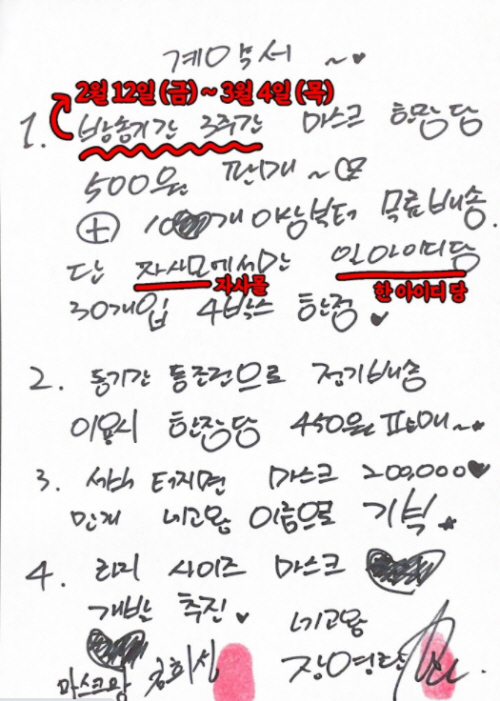 계약서 ~♥
2월 12일 (금) ~ 3월 4일 (목)
1. 방송기간 3주간 마스크 한장당
500원 판매 ~
+ 10개 이상부터 무료배송.
단 자사모에서만 일아이디당
자사몰 한 아이디 당
30개입 4박스 한정 ♥
2. 동기간 동조건으로 정기배송
이용시 한장당 450원 판매~
3. 서버 터지면 마스크 200,000♥
만개 네고왕 이름으로 기부.
4. 라지 사이즈 마스크
개발 추진. ♥ 네고왕
마스크왕 장영란